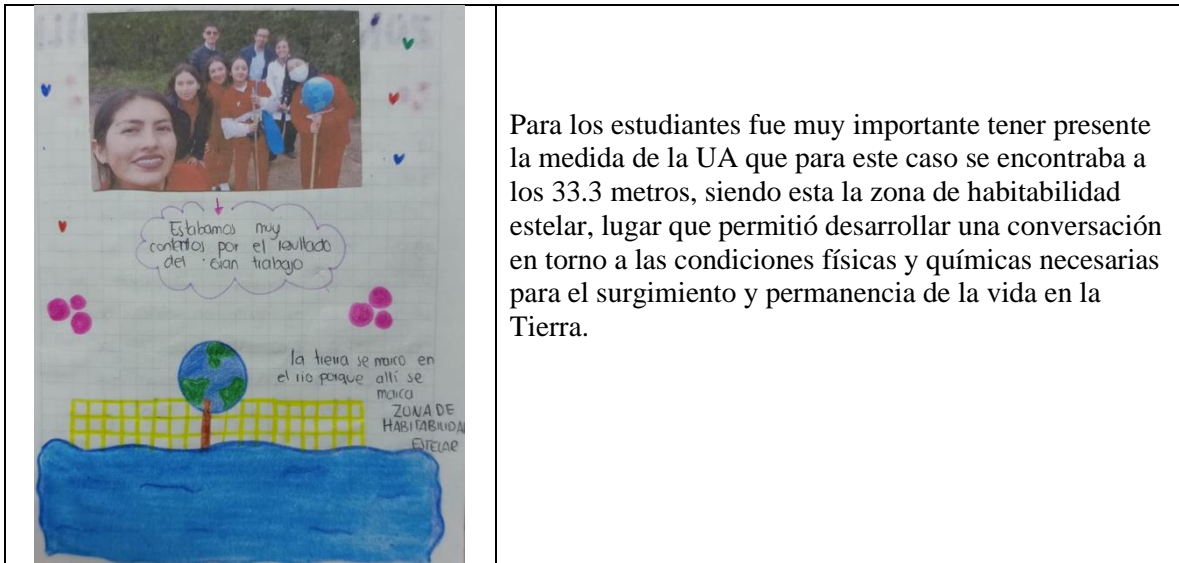 Estábamos muy
contentos por el resultado
del Gran trabajo
la tierra se marco en
el rio porque allí se
marca
ZONA DE
HABITABILIDAD
ESTELAR
Para los estudiantes fue muy importante tener presente
la medida de la UA que para este caso se encontraba a
los 33.3 metros, siendo esta la zona de habitabilidad
estelar, lugar que permitió desarrollar una conversación
en torno a las condiciones físicas y químicas necesarias
para el surgimiento y permanencia de la vida en la
Tierra.